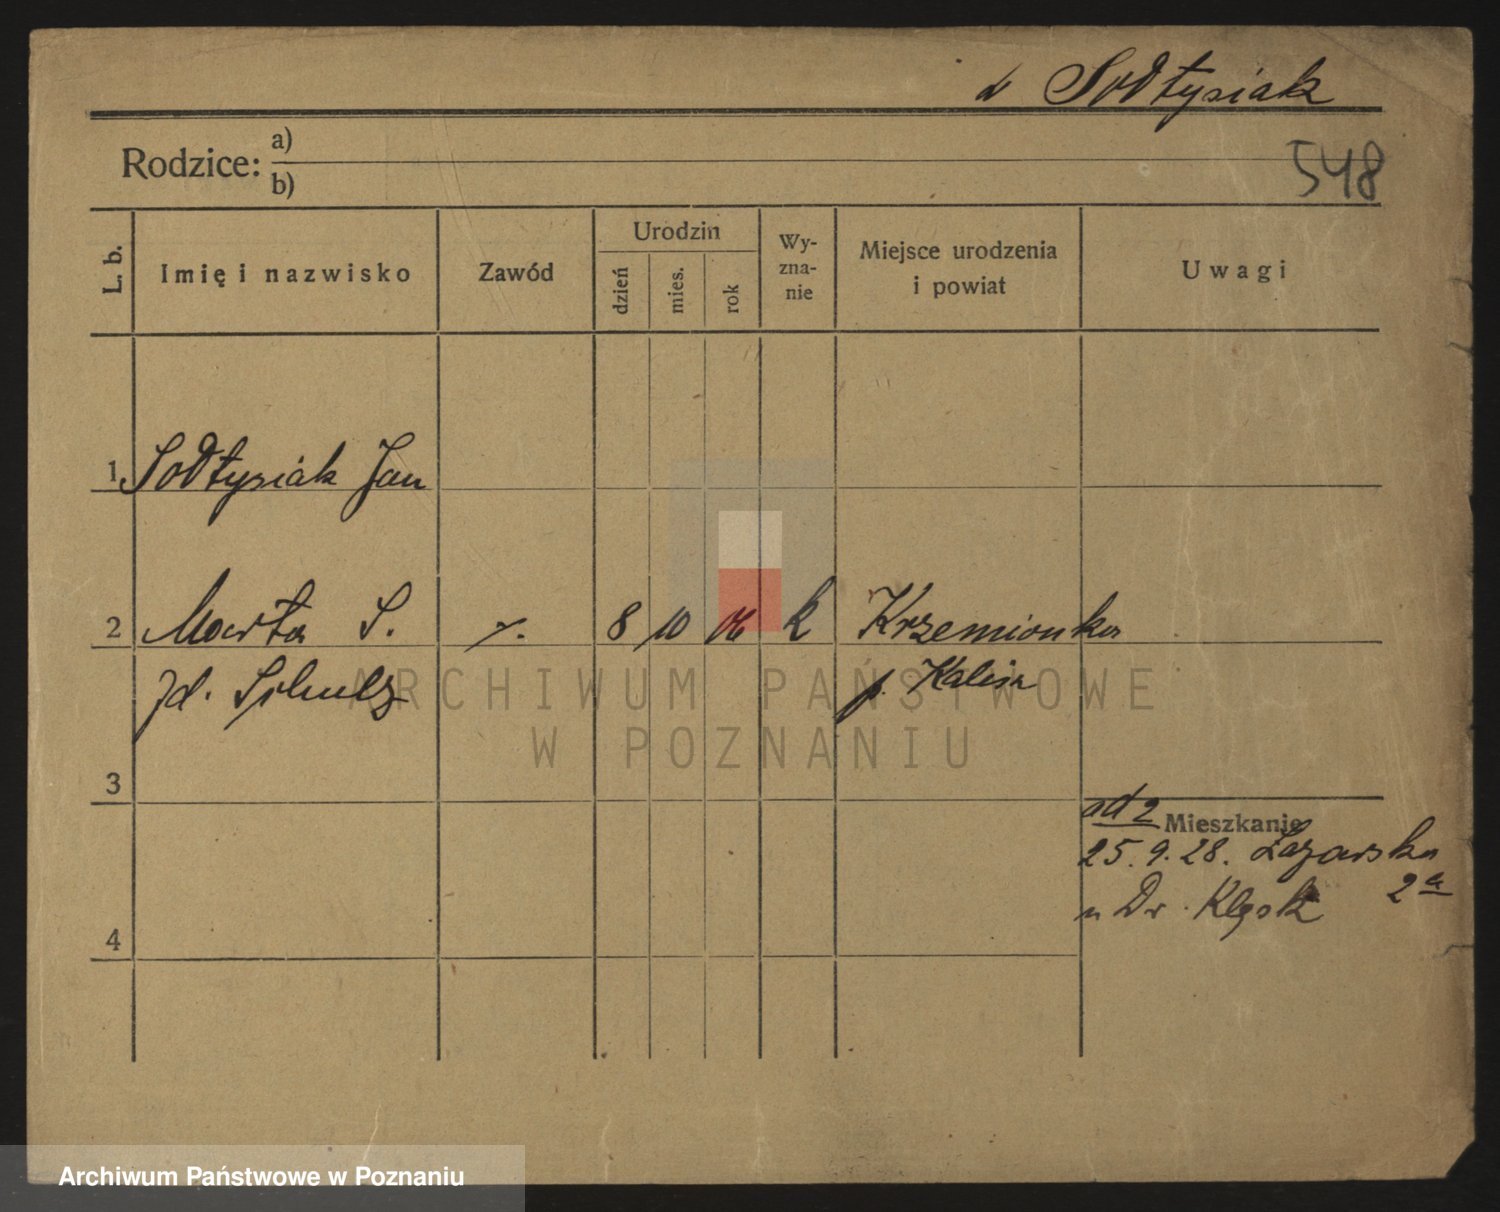 Sołtysiak
548
Rodzice: a)
b)
L. b. Imię i nazwisko Zawód Urodzin dzień mies. rok Wy-zna-nie Miejsce urodzenia i powiat Uwagi
1 Sołtysiak Jan
2 Marta S. 8 10 06 k Krzemionka
zd. Schulz p. Kalisz
3
od 2 Mieszkanie
25.9.28. Łazarska
2a
u Dr. Klęsk
4
ARCHIWUM PAŃSTWOWE
W POZNANIU
Archiwum Państwowe w Poznaniu